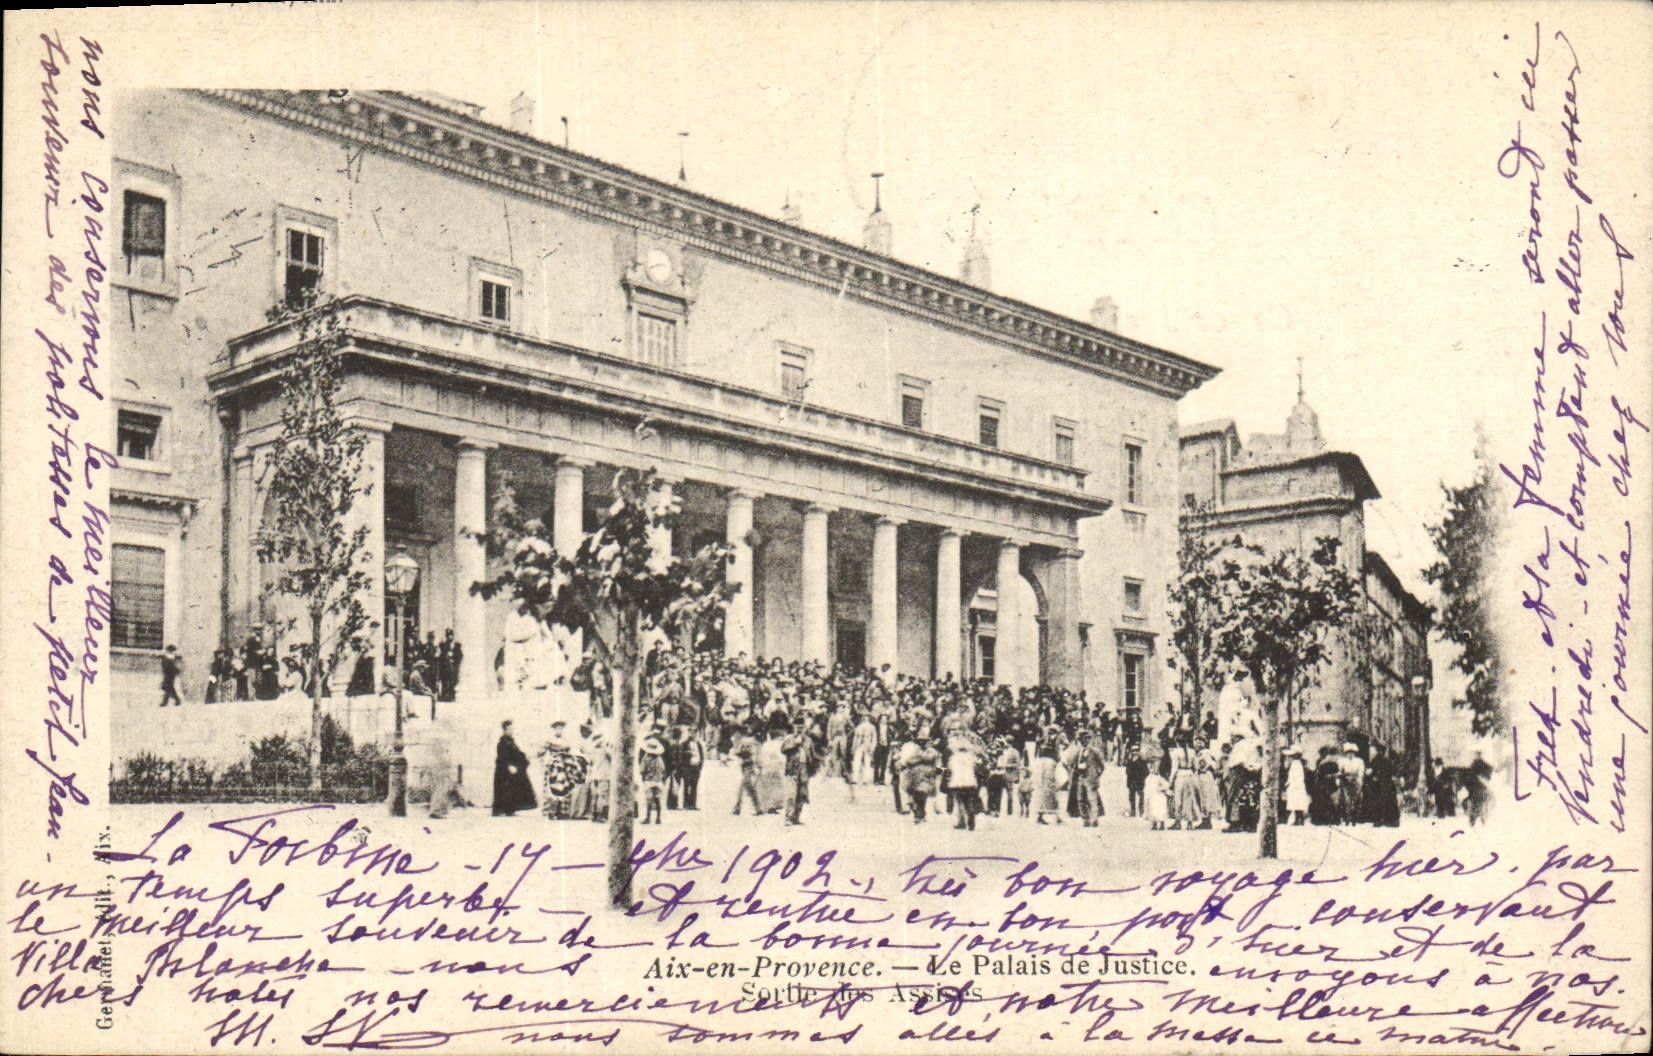 La Forbine - 17 - 7bre 1902., très bon voyage hier. par
un temps superbe. - et rentrée en bon port, conservant
le meilleur souvenir de la bonne journée d'hier et de la
Villa Blanche - nous envoyons à nos.
chers hôtes nos remerciements et notre meilleure affection
nous sommes allés à la messe ce matin.
Aix-en-Provence. — Le Palais de Justice.
Sortie des Assises
Germanet, édit., Aix.
nous conservons le meilleur
souvenir des politesses de petit Jean -
et sa femme seront ici
Vendredi - et comptent aller passer
une journée chez vous